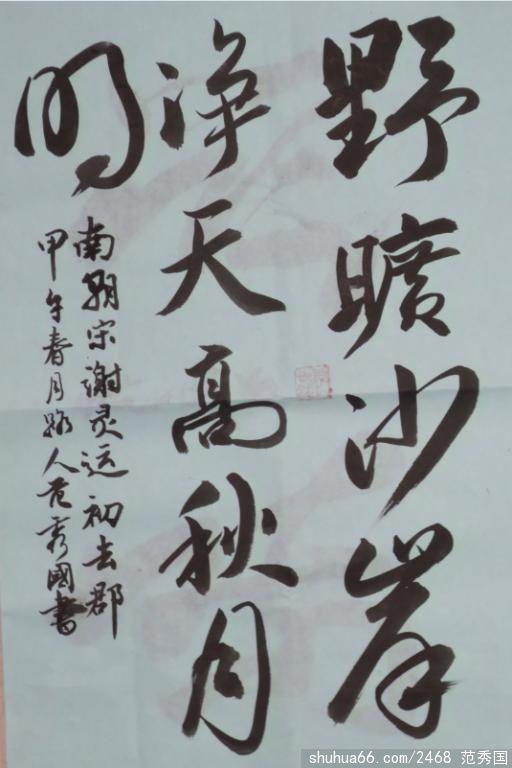 野曠沙岸
淨天高秋月
明
南朝宋谢灵运初去郡
甲午春月路人范秀國書
shuhua66.com/2468 范秀国